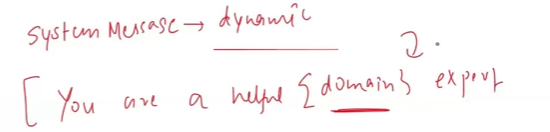 System Message → dynamic
[ You are a helpful {domain} expert